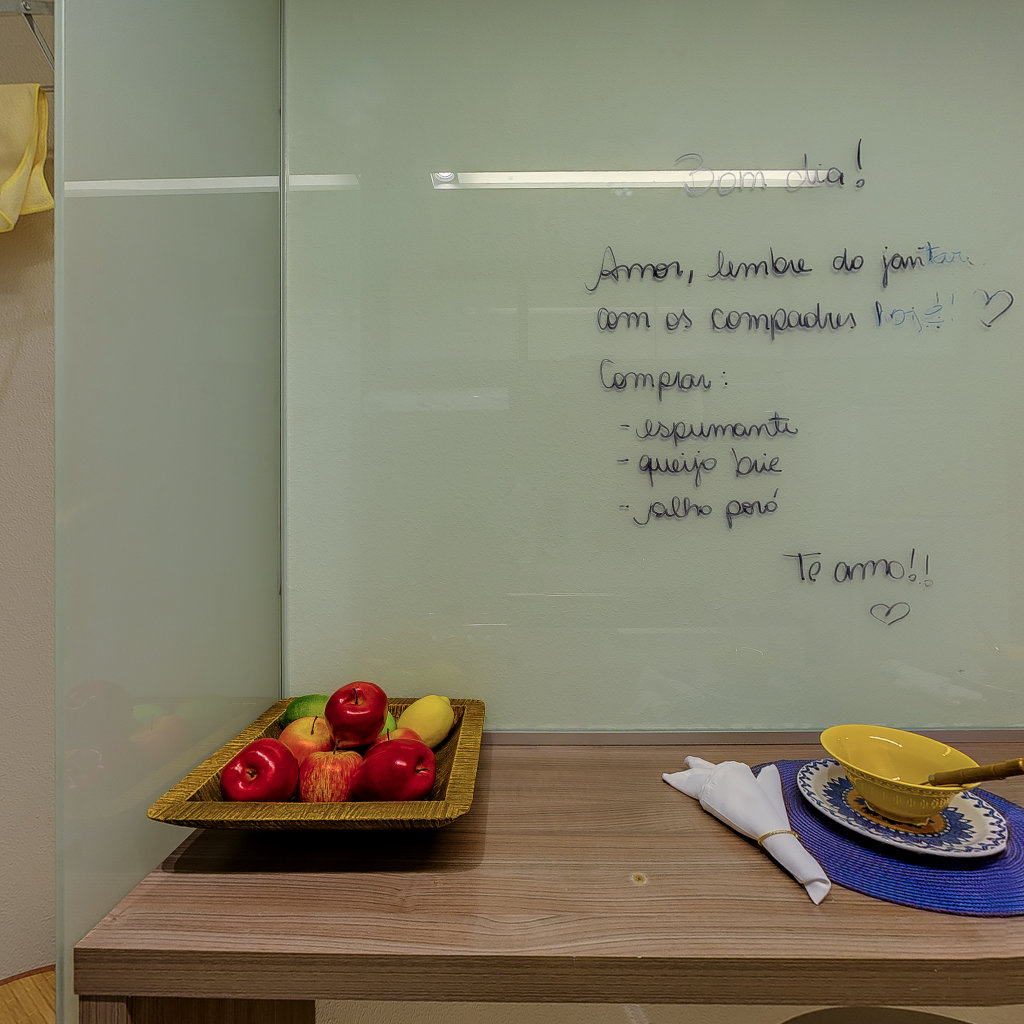 Bom dia!
Amor, lembre do jantar
com os compadres hoje! ♡
Comprar:
- espumante
- queijo brie
- alho poró
Te amo!!
♡